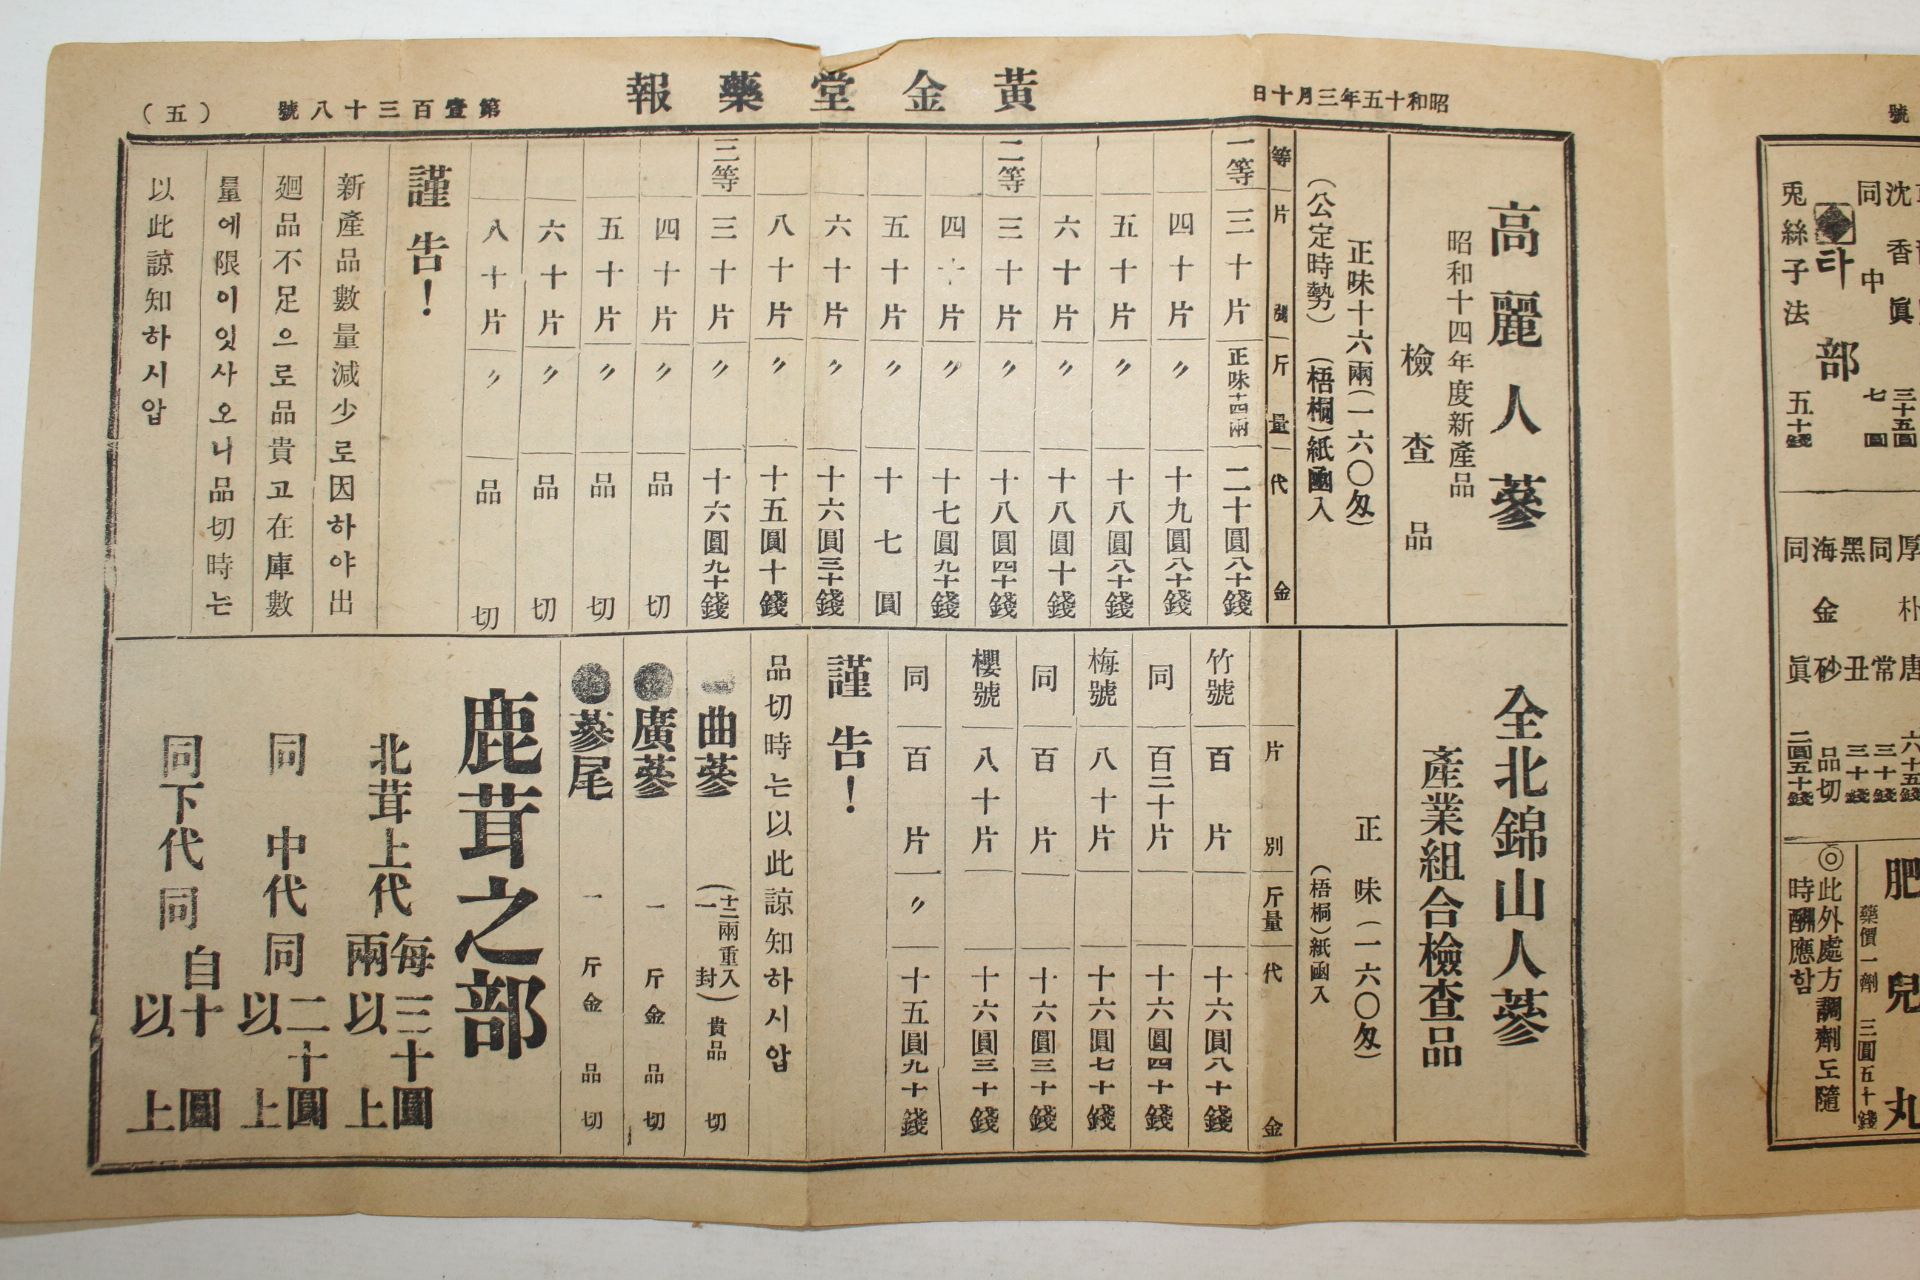 昭和十五年三月十日
黃金堂藥報
第壹百三十八號
(五)
高麗人蔘
昭和十四年度新產品
檢查品
正味十六兩(一六〇匁)
(公定時勢) (梧桐)紙凾入
等 片 斤量 代金
一等 三十片 正味十四兩 二十圓八十錢
四十片 〃 十九圓八十錢
五十片 〃 十八圓八十錢
六十片 〃 十八圓八十錢
二等 三十片 〃 十八圓四十錢
四十片 〃 十七圓九十錢
五十片 〃 十七圓
六十片 〃 十六圓三十錢
八十片 〃 十五圓十錢
三等 三十片 〃 十六圓九十錢
四十片 〃 品切
五十片 〃 品切
六十片 〃 品切
八十片 〃 品切
謹告!
新產品數量減少로因하야出
廻品不足으로品貴고在庫數
量에限이잇사오니品切時는
以此諒知하시압
全北錦山人蔘
產業組合檢查品
正味(一六〇匁)
(梧桐)紙凾入
片別 斤量 代金
竹號 百片 十六圓八十錢
同 百二十片 十六圓四十錢
梅號 八十片 十六圓七十錢
同 百片 十六圓三十錢
櫻號 八十片 十六圓三十錢
同 百片 〃 十五圓九十錢
謹告!
品切時는以此諒知하시압
曲蔘 (十二兩重入一封) 貴品切
廣蔘 一斤金 品切
蔘尾 一斤金 品切
鹿茸之部
北茸上代 每兩 三十圓以上
同中代 同 二十圓以上
同下代 同 自十圓以上
號
沈香眞 三十五圓
同中 七圓
타部
兎絲子法 五十錢
厚朴唐 六十五錢
同常 三十錢
黑丑 三十錢
海金砂 品切
同眞 二圓五十錢
肥兒丸
藥價一劑 三圓五十錢
◎此外處方調劑도隨
時酬應함